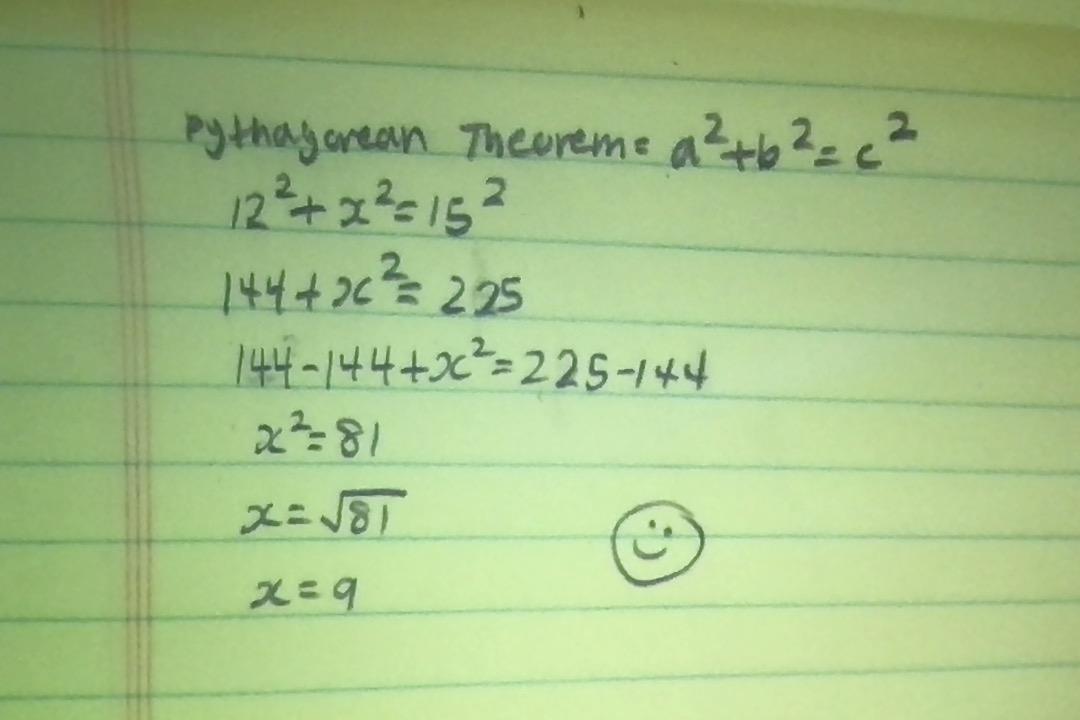 Pythagorean Theorem= a²+b²=c²
12²+x²=15²
144+x²=225
144-144+x²=225-144
x²=81
x=√81
x=9